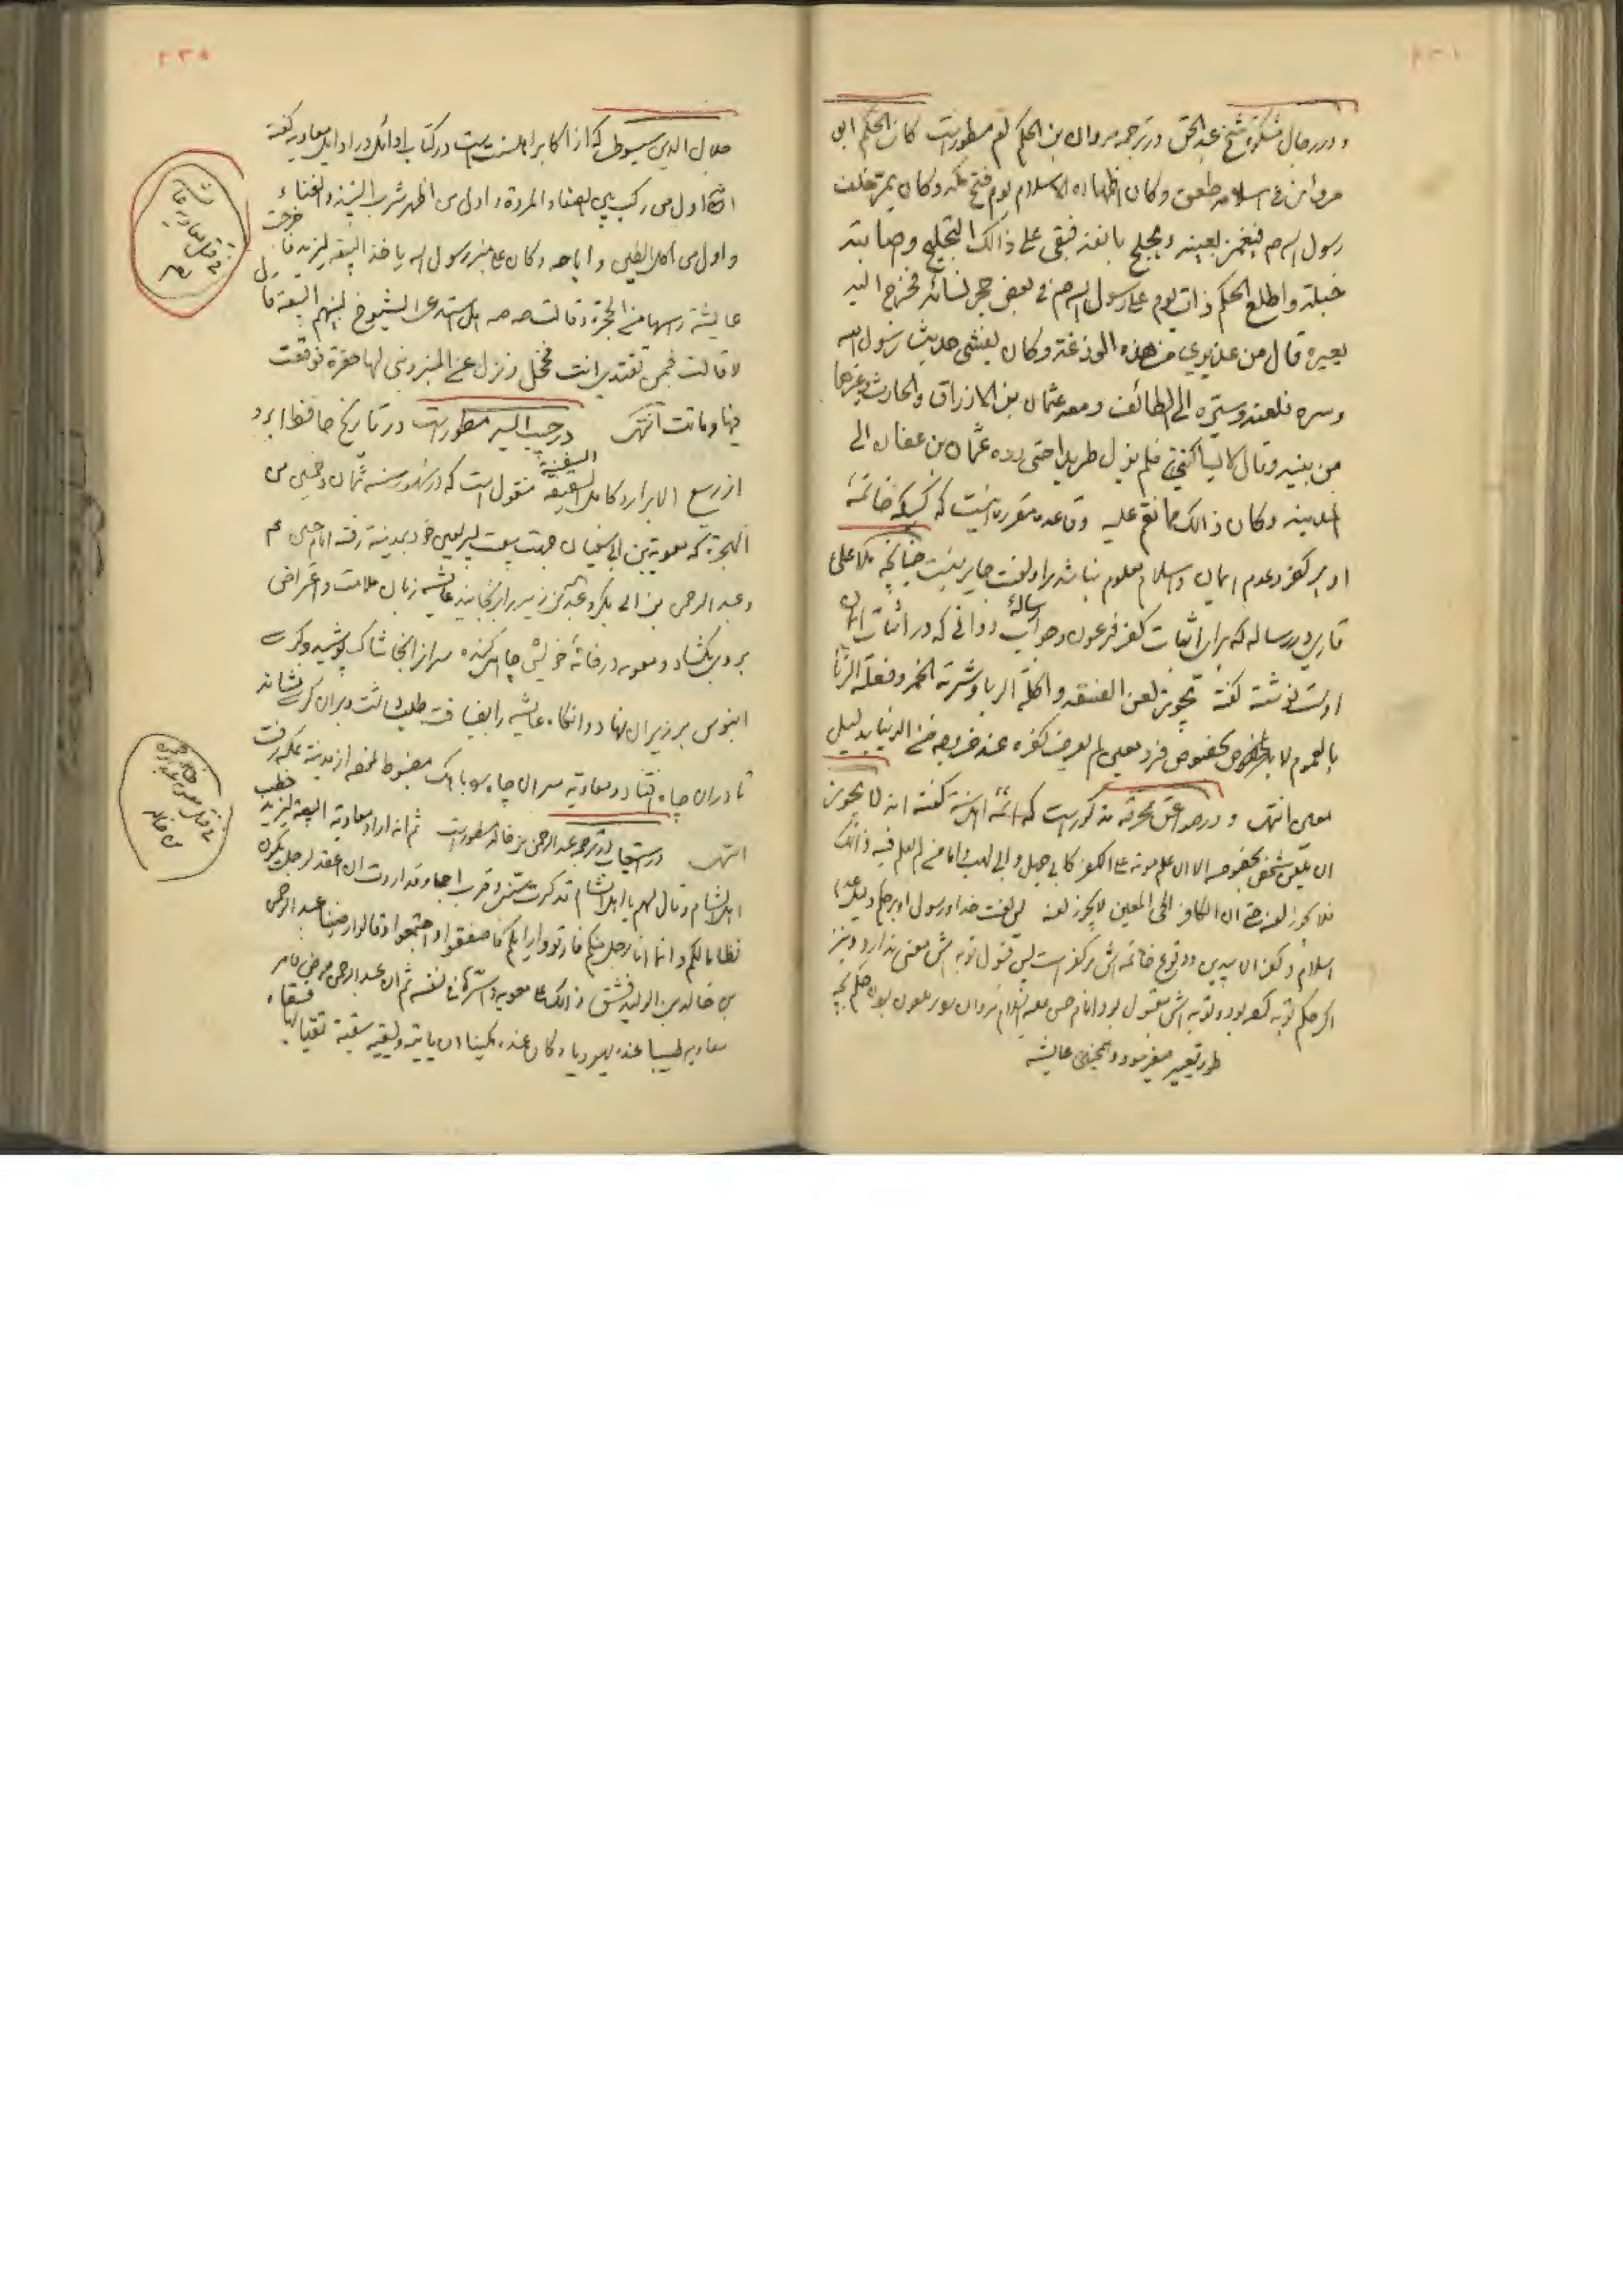 و در رجال مشکوة شیخ عبد الحق در ترجمه مروان بن الحکم مسطور است کان الحکم ابو
مروان فی اسلامه طعن و کان اظهاره الاسلام یوم فتح مکه و کان یمر خلف
رسول الله ص فیغمز بعینه و یخلج بانفه فبقی علی ذالک التخلیج و صابته
خبلة و اطلع الحکم ذات یوم علی رسول الله ص فی بعض حجر نسائه فخرج الیه
بعیره قال من عذیری من هذه الوزغة و کان یفشی حدیث رسول الله
و سره فلعنه و سیره الی الطائف و معه عثمان بن الازراق و الحارث و غیرها
من بنیه و قال لا یساکننی فلم یزل طریدا حتی رده عثمان بن عفان الی
المدینة و کان ذالک مما نقم علیه و قاعده مقرره است که کسیکه خاتمه
او بر کفر و عدم ایمان و اسلام معلوم نباشد بر او لعنت جایز نیست چنانچه ملا علی
قاری در رساله که برای اثبات کفر فرعون و جواب رسالهٔ دوانی که در اثبات ایمان
اوست نوشته گفته تجویز لعن الفسقه و اکلة الربا و شربة الخمر و فعلة الزنا
بالعموم لا بالخصوص بخصوص فرد معین لم یعرف کفره عند خروجه من الدنیا بدلیل
معین انتهی و در صواعق محرقه مذکور است که ائمه اهل سنة گفته انه لا یجوز
ان یلعن شخص بخصوصه الا ان علم موته علی الکفر کابی جهل و ابی لهب و اما من لم یعلم فیه ذالک
فلا یجوز لعنه حتی ان الکافر الحی المعین لا یجوز لعنه پس لعنت خدا و رسول او بر حکم دلیل عدم
اسلام و کفر ان بیدین و وقوع خاتمه اش بر کفر است پس قبول توبه اش معنی ندارد و نیز
اگر حکم توبه کرده بود و توبه اش مقبول بود امام حسن علیه السلام مروان را ملعون بودن حکم بچه
طور تعییر میفرمود و همچنین عایشه
جلال الدین سیوطی که از اکابر اهل سنت است در کتاب اوائل در اوایل معاویه گفته
اول من رکب بین الصفا و المروة و اول من اظهر شرب النبیذ و الغناء
و اول من اکل الطین و اباحه و کان علی منبر رسول الله یاخذ البیعة لیزید فاخرجت
عایشة راسها من الحجرة و قالت صه صه هل استدعی الشیوخ لبنیهم البیعة قال
لا قالت فبمن تقتدی انت فخجل و نزل عن المنبر و بنی لها حفرة فوقعت
فیها و ماتت انتهی در حبیب السیر مسطور است در تاریخ حافظ ابرو
از ربیع الابرار و کامل السفینة منقول است که در شهور سنه ثمان و خمسین من
الهجرة که معویة بن ابی سفیان جهت بیعت پسر لعین خود بمدینه رفته امام حسین ع
و عبد الرحمن بن ابی بکر و عبد الله بن زبیر را برنجانید عایشه زبان ملامت و اعتراض
بر وی بگشاد و معویه در خانهٔ خویش چاهی کنده سر انرا بخاشاک پوشید و کرسی
ابنوس بر زبر ان نهاد و انگاه عایشه را بضیافت طلب داشت و بر ان کرسی نشاند
تا در ان چاه افتاد و معاویه سر ان چاه را باهک مضبوط ساخته از مدینه بمکه رفت
انتهی در استیعاب در ترجمه عبد الرحمن بن خالد مسطور است ثم انه اراد معاویة البیعة لیزید خطب
اهل الشام و قال لهم یا اهل الشام قد کبرت سنی و قرب اجلی و قد اردت ان اعقد لرجل یکون
نظاما لکم و انما انا رجل منکم فارتووا رایکم فاصفقوا و اجتمعوا و قالوا رضینا عبد الرحمن
بن خالد بن الولید فشق ذالک علی معویه و اسرها فی نفسه ثم ان عبد الرحمن مرض فامر
معاویه طبیبا عنده یهودیا و کان عنده مکینا ان یاتیه و یسقیه سقیة یقتله بها فسقاه